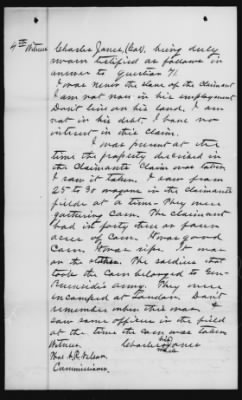 4th Witness Charlie Jones, (Col), being duly
sworn testified as follows in
answer to Question 71.
I was never the slave of the Claimant
I am not now in his employment
Don't live on his land, I am
not in his debt. I have no
interest in this claim.
I was present at the
time the property described in
the Claimants Claim was taken
I saw it taken. I saw from
25 to 30 wagons in the claimants
fields at a time. They were
gathering Corn. The claimant
had it forty
acres of Corn. It was good
Corn. It was ripe. It was
on the The soldiers that
took the Corn belonged to Gen
Burnside's army. They were
encamped at Loudon. Don't
remember when this was. I
saw some officers in the field
at the time the Corn was taken
Witness. Charlie his x mark Jones
Thos A R Nelson
Commissioner.